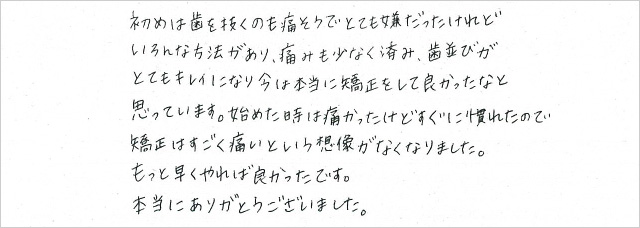 初めは歯を抜くのも痛そうでとても嫌だったけれど
いろんな方法があり、痛みも少なく済み、歯並びが
とてもキレイになり今は本当に矯正をして良かったなと
思っています。始めた時は痛かったけどすぐに慣れたので
矯正はすごく痛いという想像がなくなりました。
もっと早くやれば良かったです。
本当にありがとうございました。